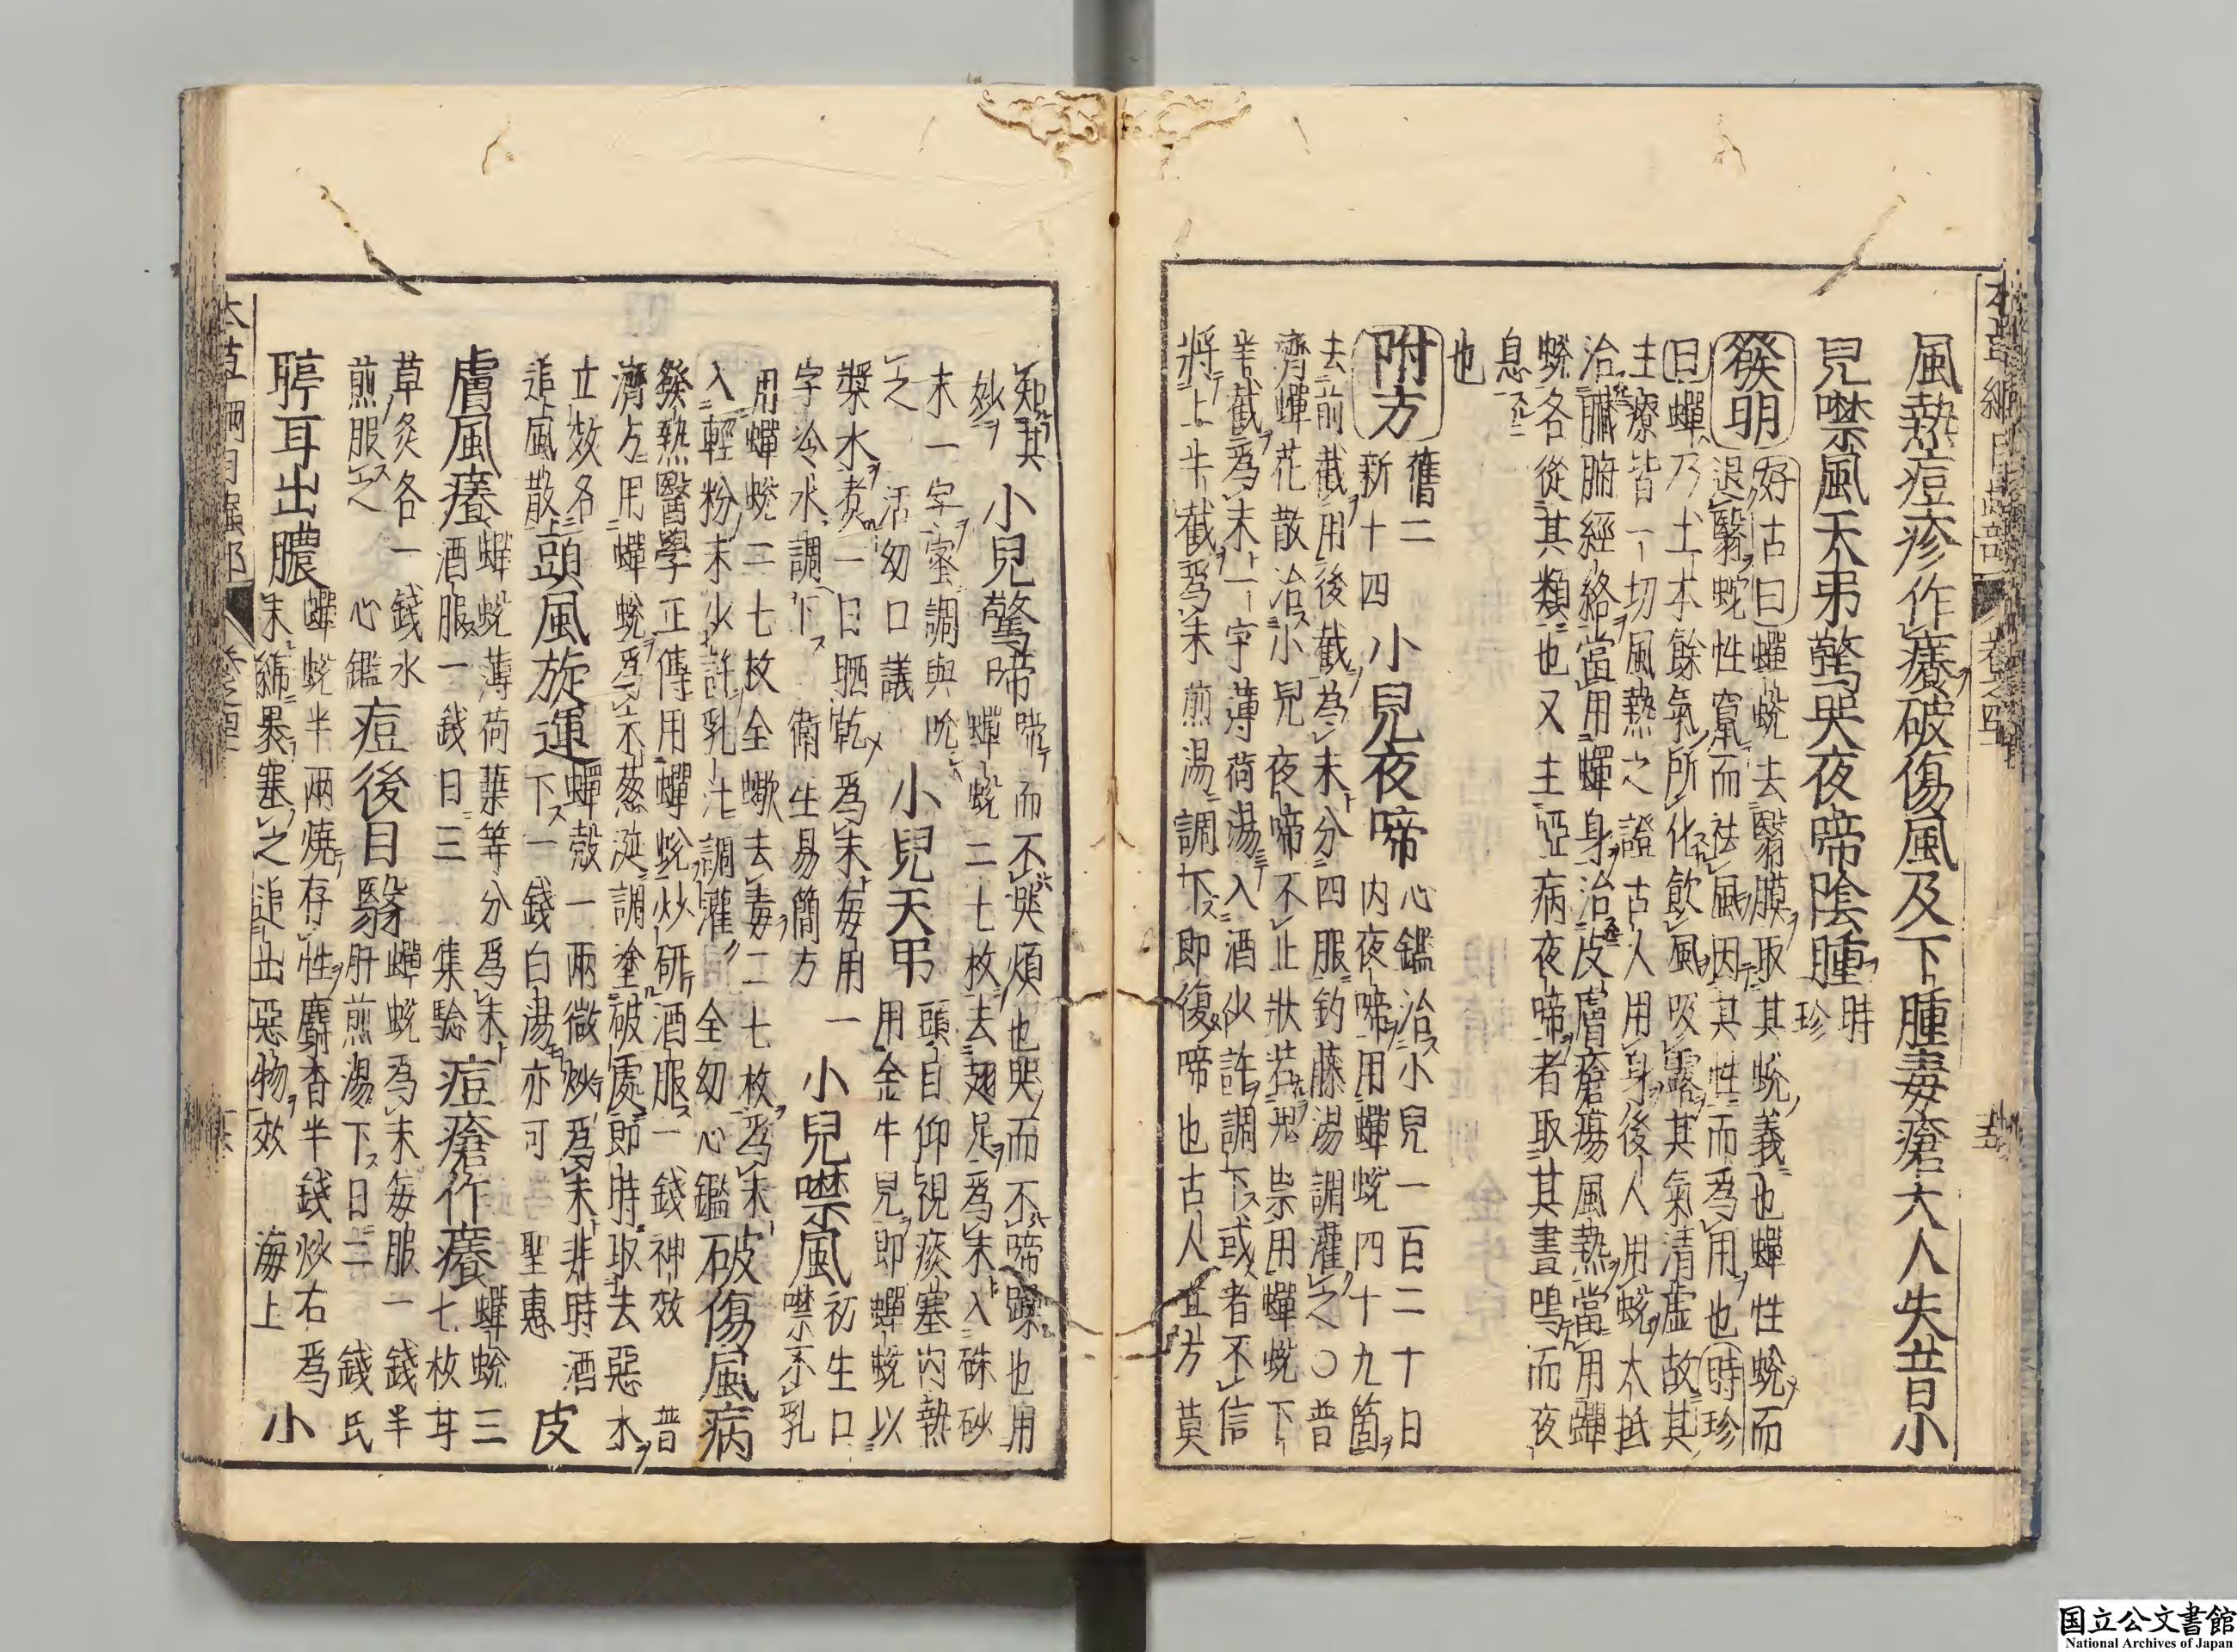 風熱痘疹作癢破傷風及下腫毒瘡大人失音小
兒噤風天弔驚哭夜啼陰腫時珍
發明
好古曰蟬蛻去翳膜取其蛻義也蟬性蛻而
退翳蛇性竄而祛風因其性而為用也時珍
曰蟬乃土木餘氣所化飲風吸露其氣清虛故其
主療皆一切風熱之證古人用身後人用蛻大抵
治臟腑經絡當用蟬身治皮膚瘡瘍風熱當用蟬
蛻各從其類也又主啞病夜啼者取其晝鳴而夜
息
也
附方
舊二
新十四
小兒夜啼
心鑑治小兒一百二十日
內夜啼用蟬蛻四十九箇
去前截用後截為末分四服釣藤湯調灌之○普
濟蟬花散治小兒夜啼不止狀若鬼祟用蟬蛻下
半截為末一字薄荷湯入酒少許調下或者不信
將上半截為末煎湯調下即復啼也古人立方莫
知其
妙
小兒驚啼
啼而不哭煩也哭而不啼躁也用
蟬蛻二七枚去翅足為末入硃砂
末一字蜜調與吮
之
活幼口議
小兒天弔
頭目仰視痰塞內熱
用金牛兒即蟬蛻以
漿水煮一日晒乾為末每用一
字冷水調下
衛生易簡方
小兒噤風
初生口
噤不乳
用蟬蛻二七枚全蠍去毒二七枚為末
入輕粉末少許乳汁調灌
全幼心鑑
破傷風病
發熱醫學正傳用蟬蛻炒研酒服一錢神效
普
濟方用蟬蛻為末葱涎調塗破處即時取去惡水
立效名
追風散
頭風旋運
蟬殼一兩微炒為末非時酒
下一錢白湯亦可
聖惠
皮
膚風癢
蟬蛻薄荷葉等分為末
酒服一錢日三
集驗
痘瘡作癢
蟬蛻三
七枚甘
草炙各一錢水
煎服之
心鑑
痘後目翳
蟬蛻為末每服一錢羊
肝煎湯下日二
錢氏
聤耳出膿
蟬蛻半兩燒存性麝香半錢炒右為
末綿裹塞之追出惡物效
海上
小
国立公文書館
National Archives of Japan